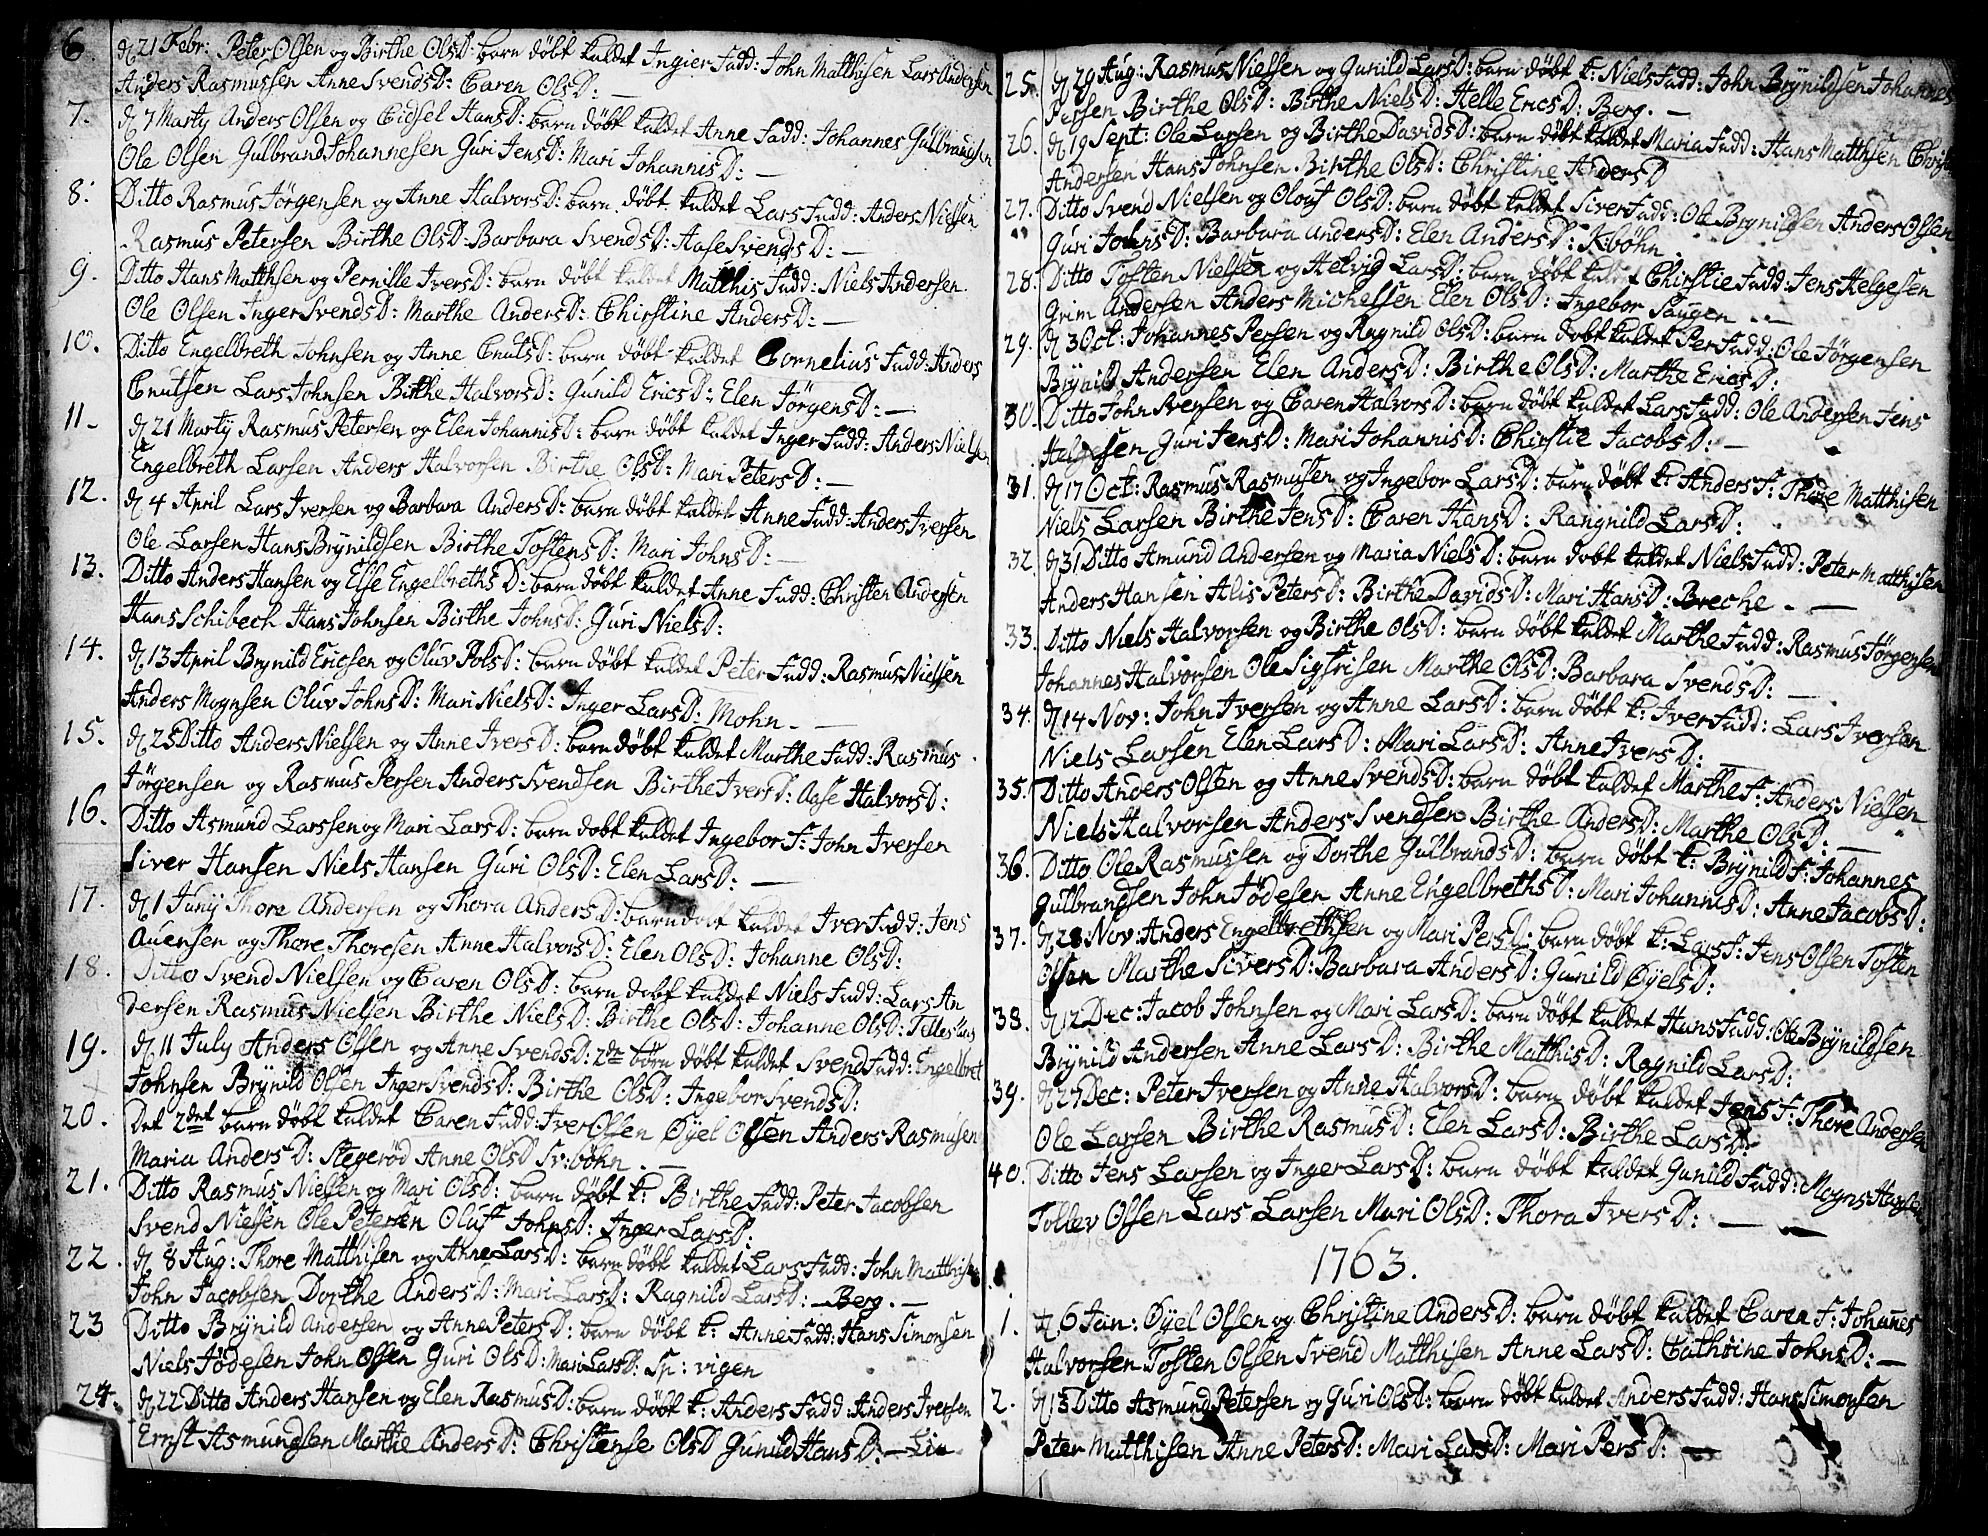 6. d 21 Febr: Peter Olsen og Birthe OlsD: barn döbt kaldet Ingier Fadd: John Matthisen Lars Andersen
Anders Rasmussen Anne SvendsD: Caren OlsD: —
7. d 7 Marty Anders Olsen og Cidsel HansD: barn döbt kaldet Anne Fadd: Johannes Gulbrandsen
Ole Olsen Gulbrand Johannesen Guri JensD: Mari JohannisD: —
8. Ditto Rasmus Jörgensen og Anne HalvorsD: barn döbt kaldet Lars Fadd: Anders Nielsen
Rasmus Petersen Birthe OlsD: Barbara SvendsD: Aase SvendsD: —
9. Ditto Hans Matthsen og Pernille IversD: barn döbt kaldet Matthis Fadd: Niels Andersen
Ole Olsen Inger SvendsD: Marthe AndersD: Chirstine AndersD: —
10. Ditto Engelbreth Johnsen og Anne CnutsD: barn döbt kaldet Cornelius Fadd: Anders
Cnutsen Lars Johnsen Birthe HalvorsD: Gunild EricsD: Elen JörgensD: —
11 - d 21 Marty Rasmus Petersen og Elen JohannisD: barn döbt kaldet Inger Fadd: Anders Nielsen
Engelbreth Larsen Anders Halvorsen Birthe OlsD: Mari PetersD: —
12. d 4 April Lars Iversen og Barbara AndersD: barn döbt kaldet Anne Fadd: Anders Iversen
Ole Larsen Hans Brynildsen Birthe TostensD: Mari JohnsD: —
13. Ditto Anders Hansen og Else EngelbrethsD: barn döbt kaldet Anne Fadd: Christen Andersen
Hans Schibech Hans Johnsen Birthe JohnsD: Guri NielsD:
14. d 13 April Brynild Ericsen og Oluv PolsD: barn döbt kaldet Peter Fadd: Rasmus Nielsen
Anders Mognsen Oluv JohnsD: Mari NielsD: Inger LarsD: Mohn - —
15. d 25 Ditto Anders Nielsen og Anne IversD: barn döbt kaldet Marthe Fadd: Rasmus
Jörgensen og Rasmus Persen Anders Svendsen Birthe IversD: Aase HalvorsD:
16. Ditto Asmund Larssen og Mari LarsD: barn döbt kaldet Ingebor F: John Iversen
Siver Hansen Niels Hansen Guri OlsD: Elen LarsD: —
17. d 1 Juny Thore Andersen og Thora AndersD: barn döbt kaldet Iver Fadd: Jens
Auensen og Thore Thoresen Anne HalvorsD: Elen OlsD: Johanne OlsD:
18. Ditto Svend Nielsen og Caren OlsD: barn döbt kaldet Niels Fadd: Lars An
dersen Rasmus Nielsen Birthe NielsD: Birthe OlsD: Johanne OlsD:
19. d 11 July Anders Olsen og Anne SvendsD: 2de börn döbt kaldet Svend Fadd: Engelbret
Johnsen Brynild Olsen Inger SvendsD: Birthe OlsD: Ingebor SvendsD:
20. Det 2det barn döbt kaldet Caren Fadd: Iver Olsen Öyel Olsen Anders Rasmusen
Maria AndersD: Stegeröd Anne OlsD Sv:böhn - —
21. Ditto Rasmus Nielsen og Mari OlsD: barn döbt k: Birthe Fadd: Peter Jacobsen
Svend Nielsen Ole Petersen Oluf JohnsD: Inger LarsD:
22. d 8 Aug: Thore Matthisen og Anne LarsD: barn döbt kaldet Lars Fadd: John Matthisen
John Jacobsen Dorthe AndersD: Mari LarsD: Ragnild LarsD: Berg. —
23 Ditto Brynild Andersen og Anne PetersD: barn döbt k: Anne Fadd: Hans Simonsen
Niels Jödesen John Olsen Guri OlsD: Mari LarsD: Sp: vigen
24. d 22 Ditto Anders Hansen og Elen RasmusD: barn döbt k: Anders Fadd: Anders Iversen
Ernst Asmundsen Marthe AndersD: Christense OlsD Gunild HansD: - Lie
25. d 29 Aug: Rasmus Nielsen og Gunild LarsD: barn döbt k: Niels Fadd: John Brynildsen Johannes
Persen Birthe OlsD: Birthe NielsD: Helle EricsD: Berg. —
26. d 19 Sept: Ole Larsen og Birthe DavidsD: barn döbt kaldet Maria Fadd: Hans Matthsen
Andersen Hans Johnsen Birthe OlsD: Christine AndersD
27. Ditto Svend Nielsen og Olouf OlsD: barn döbt kaldet Siver Fadd: Ole Brynildsen Anders Olsen
Guri JohnsD: Barbara AndersD: Elen AndersD: K:böhn
28. Ditto Tosten Nielsen og Helvig LarsD: barn döbt kaldet Chirstie Fadd: Jens Helgesen
Grim Andersen Anders Michelsen Elen OlsD: Ingebor Saugen - —
29. d 3 Oct: Johannes Persen og Ragnild OlsD: barn döbt kaldet Per Fadd: Ole Jörgensen
Brynild Andersen Elen AndersD: Birthe OlsD: Marthe EricsD:
30. Ditto John Iversen og Caren HalvorsD: barn döbt kaldet Lars Fadd: Ole Andersen Jens
Helgesen Guri JensD: Mari JohannisD: Chirstie JacobsD: —
31. d 17 Oct: Rasmus Rasmusen og Ingebor LarsD: barn döbt k: Anders F: Thore Matthisen
Niels Larsen Birthe JensD: Caren HansD: Rangnild LarsD:
32. d 31 Ditto Amund Andersen og Maria NielsD: barn döbt kaldet Niels Fadd: Peter Matthisen
Anders Hansen Alis PetersD: Birthe DavidsD: Mari HansD: Breche. —
33. Ditto Niels Halvorsen og Birthe OlsD: barn döbt kaldet Marthe Fadd: Rasmus Jörgensen
Johannes Halvorsen Ole Sigfrisen Marthe OlsD: Barbara SvendsD: —
34. d 14 Nov: John Iversen og Anne LarsD: barn döbt k: Iver Fadd: Lars Iversen
Niels Larsen Elen LarsD: Mari LarsD: Anne IversD: —
35. Ditto Anders Olsen og Anne SvendsD: barn döbt kaldet Marthe F: Anders Nielsen
Niels Halvorsen Anders Svendsen Birthe AndersD: Marthe OlsD: —
36. Ditto Ole Rasmussen og Dorthe GullbrandsD: barn döbt k: Brynild F: Johannes
Gulbrandsen John Jödesen Anne EngelbrethsD: Mari JohannisD: Anne JacobsD:
37. d 28 Nov: Anders Engelbrethsen og Mari PersD: barn döbt k: Lars F: Jens Olsen Tosten
Olsen Marthe SiversD: Barbara AndersD: Gunild ÖyelsD:
38. d 12 Dec: Jacob Johnsen og Mari LarsD: barn döbt kaldet Hans Fadd: Ole Brynildsen
Brynild Andersen Anne LarsD: Birthe MatthisD: Ragnild LarsD:
39. d 27 Dec: Peter Iversen og Anne HalvorsD: barn döbt kaldet Jens F: Thore Andersen
Ole Larsen Birthe RasmusD: Elen LarsD: Birthe LarsD:
40. Ditto Jens Larsen og Inger LarsD: barn döbt kaldet Gunild Fadd: Mogns Hansen
Tollev Olsen Lars Larsen Mari OlsD: Thora IversD: — —
1763.
1. d 6 Jan: Öyel Olsen og Christine AndersD: barn döbt kaldet Caren F: Johannes
Halvorsen Tosten Olsen Svend Matthisen Anne LarsD: Cathrine JohnsD: —
2. d 13 Ditto Asmund Petersen og Guri OlsD: barn döbt kaldet Anders Fadd: Hans Simonsen
Peter Matthisen Anne PetersD: Mari LarsD: Mari PersD: —